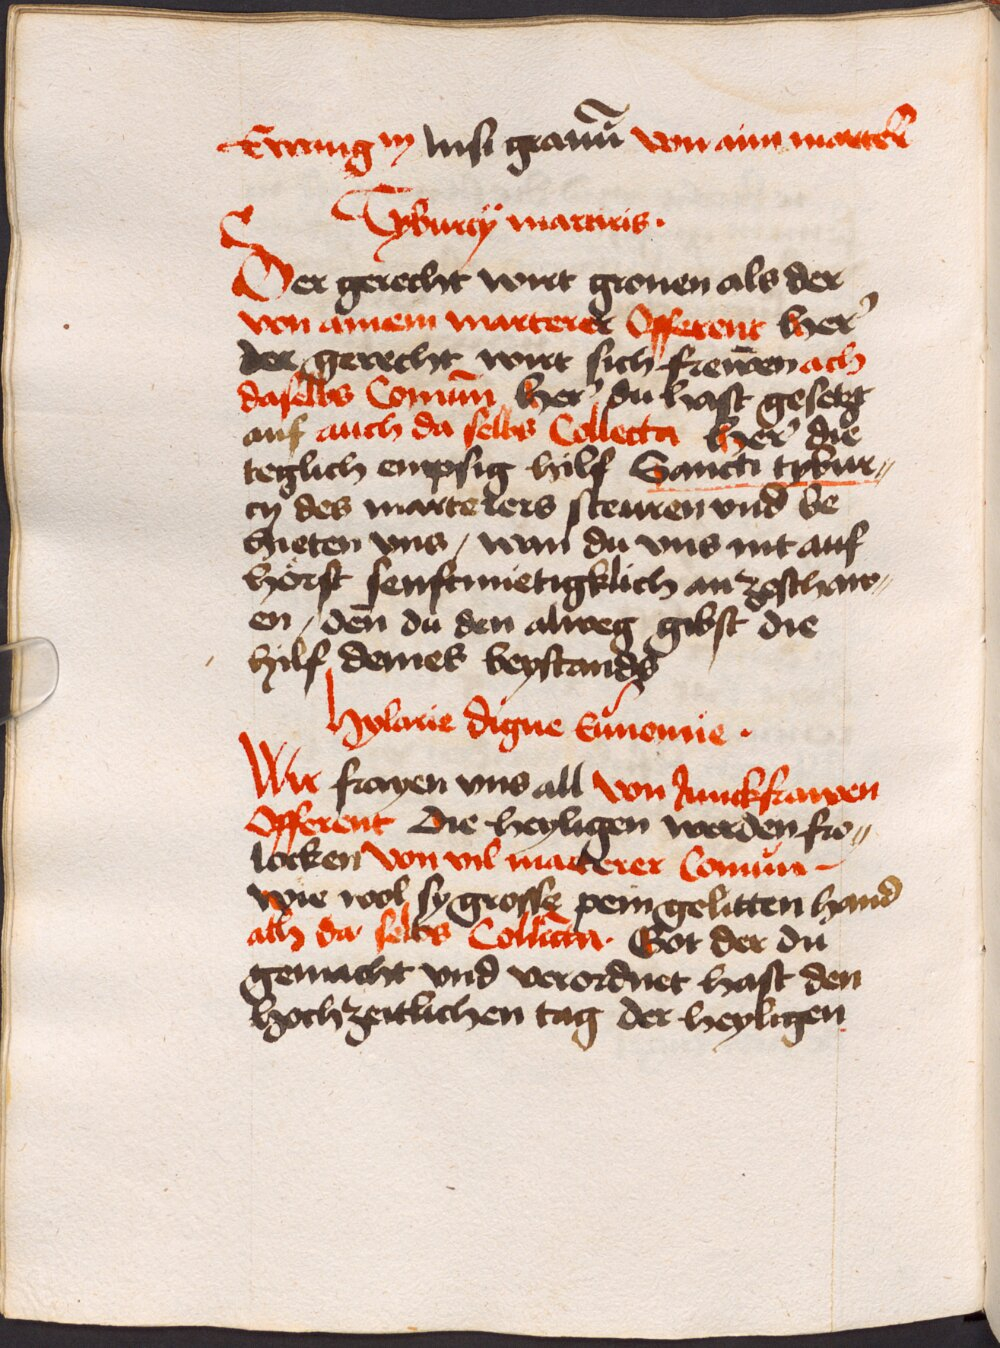 Ewangm nisi granū von aim marter̄
Tyburcÿ martiris.
Der gerecht wirt gronen als der
von ainem marterer Offerent her̾
der gerecht wirt sich frewen ach
daselbs Comūn her̾ du hast gesetzt
auf auch da selbs Collecta her̾ die
teglich empsig hilf Sancti tybur〃
cy des martelers steuren vnd be
hieten vns / wan du vns nit auf
hörst senftmietigklich an zeschaw〃
en / den du den alweg gibst die
hilf deines beystands
Hylarie digne Eunomie.
Wir frayen vns all von Junckfrawen
Offerent Die heyligen werden fro〃
locken von vil marterer Comūn
wie wol sy grosse pein gelitten hand
ach da selbs Collecta. Got der du
gemacht vnd verordnet hast den
hochzeitlichen tag der heyligen